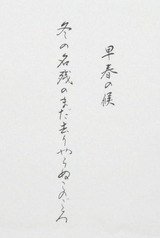 早春の候
冬の名残のまだ去りやらぬこのごろ